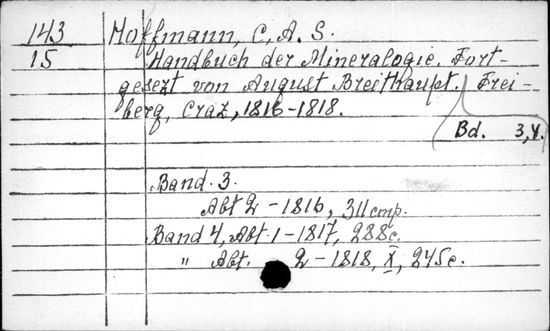 143 Hoffmann, C. A. S.
15 Handbuch der Mineralogie. Fort-
gesezt von August Breithaupt. Frei-
berg, Craz, 1816-1818.
Bd. 3,4.
Band 3.
Abt 2 - 1816, 311 стр.
Band 4, Abt. 1 - 1817, 288 с.
" Abt. 2 - 1818, X, 245 с.